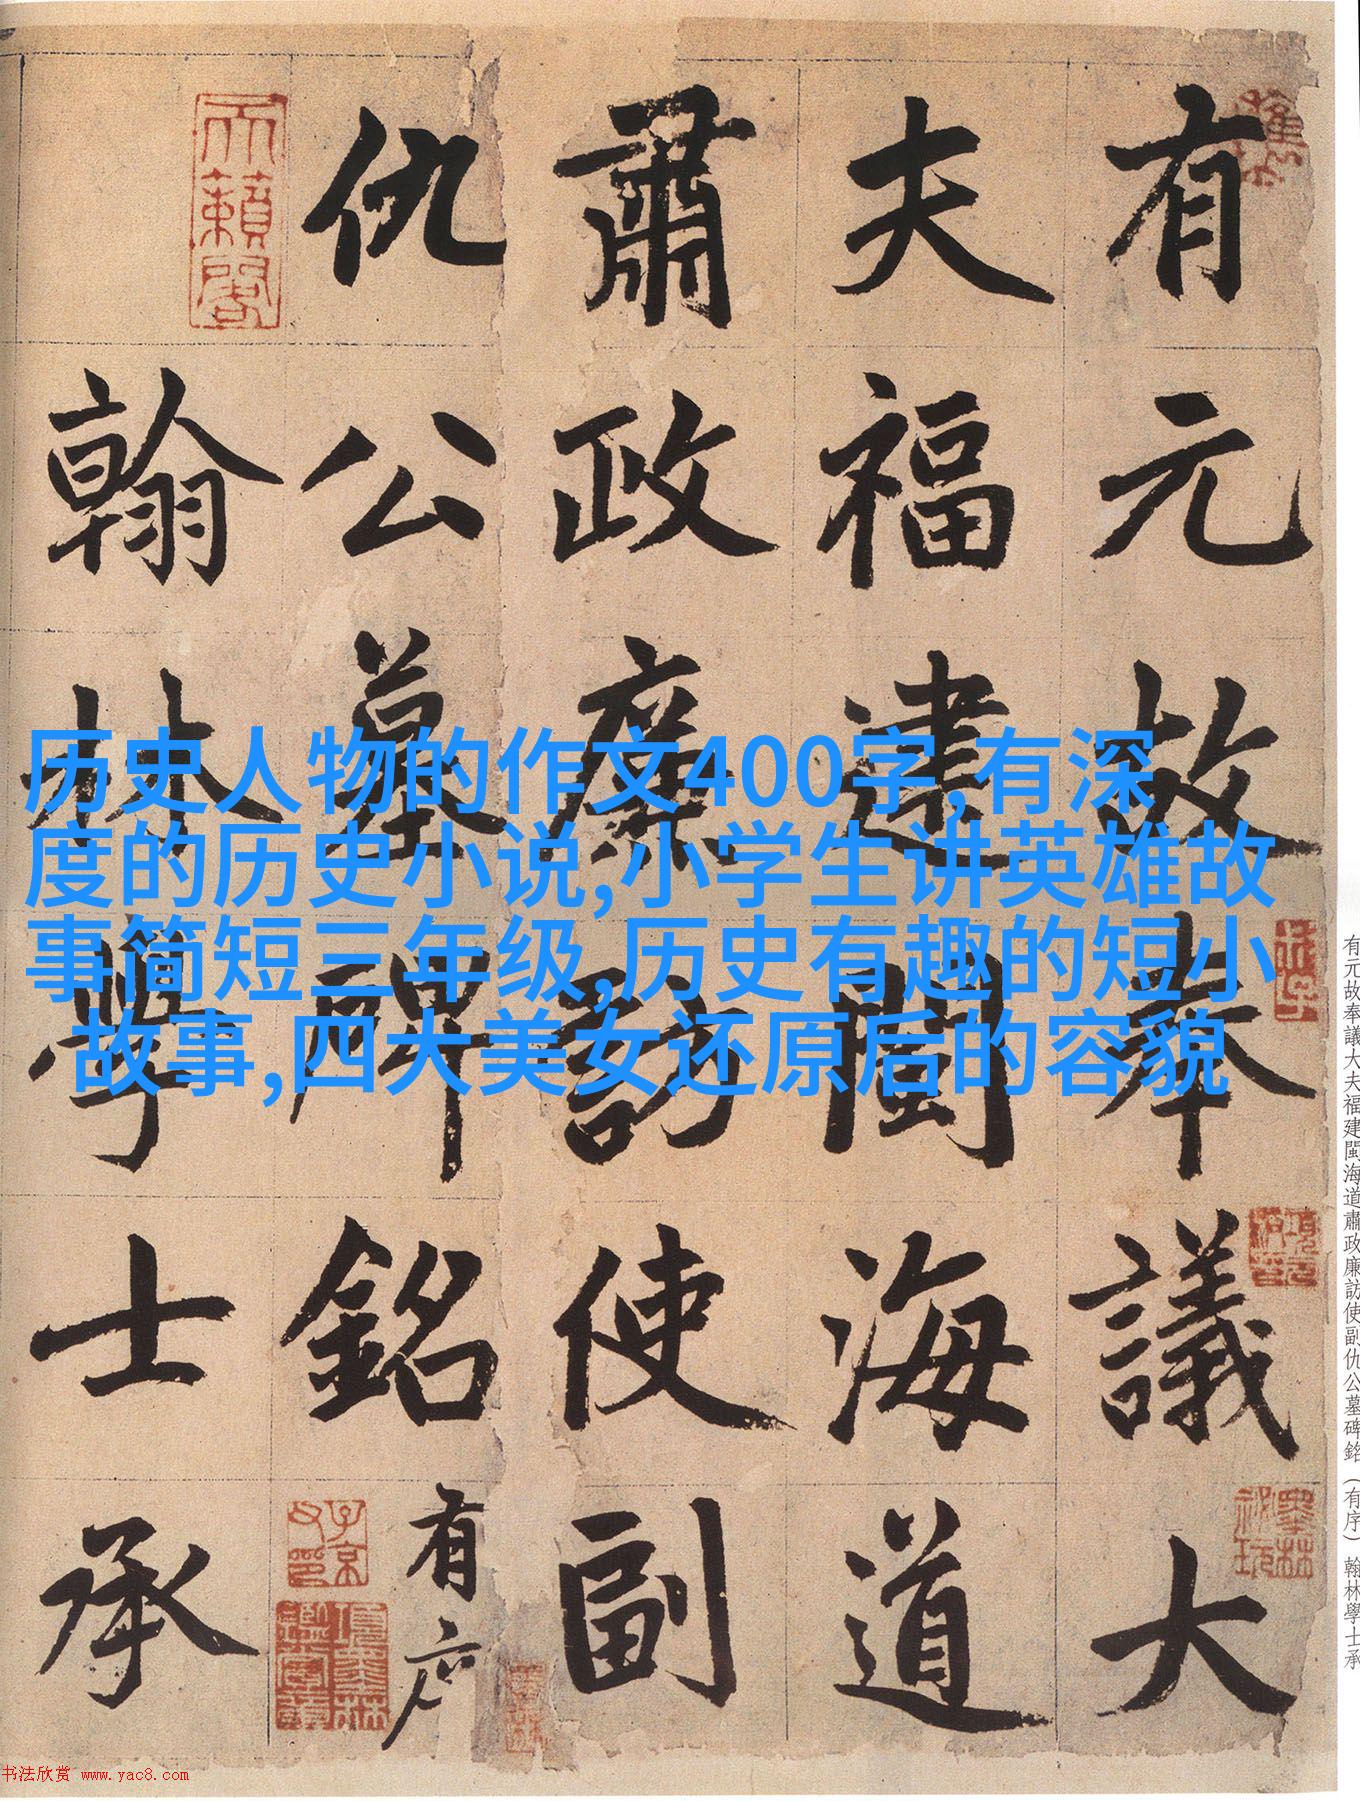 有元故奉議大
夫福建閩海道
肅政廉訪使副
仇公墓碑銘有序
翰林學士承
天籟閣
子京父印
历史人物的作文400字,有深
度的历史小说,小学生讲英雄故
事简短三年级,历史有趣的短小
故事,四大美女还原后的容貌
有元故奉議大夫福建閩海道肅政廉訪使副仇公墓碑銘（有序）翰林學士承
书法欣赏 www.yac8.com